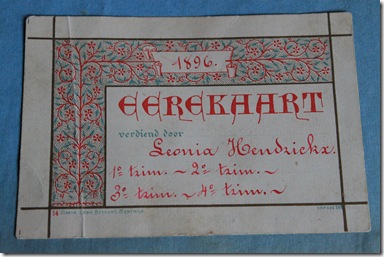 1896.
EEREKAART
verdiend door
Leonia Hendrickx.
1e trim. ~ 2e trim. ~
3e trim. ~ 4e trim. ~